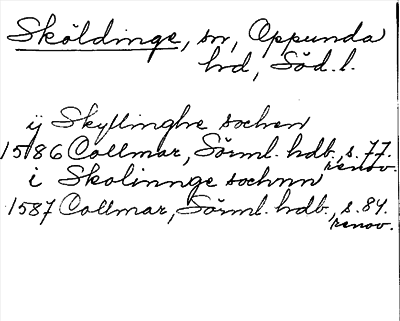 Sköldinge, sn, Oppunda
hd, Söd. l.
ij Skyllinghe sochen
1586 Collmar, Sörml. hdb., s. 77.
renov.
i Skolinnge sochnn
1587 Collmar, Sörml. hdb., s. 84.
renov.